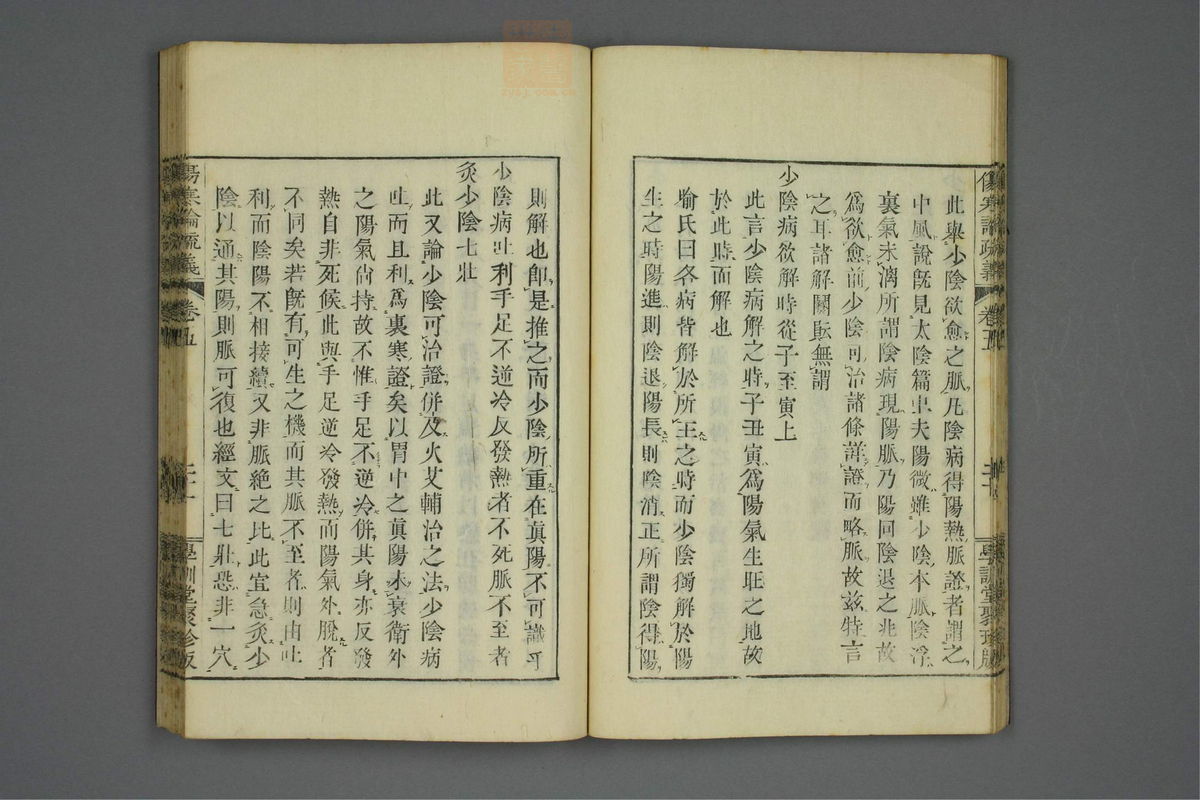 傷寒論疏義
卷五
二十
學訓堂聚珍版
此舉少陰欲愈之脈凡陰病得陽熱脈證者謂之
中風說既見太陰篇中夫陽微雖少陰本脈陰浮
裏氣未漓所謂陰病現陽脈乃陽回陰退之兆故
爲欲愈前少陰可治諸條詳證而略脈故茲特言
之耳諸解闕眩無謂
少陰病欲解時從子至寅上
此言少陰病解之時子丑寅爲陽氣生旺之地故
於此時而解也
喻氏曰各病皆解於所王之時而少陰獨解於陽
生之時陽進則陰退陽長則陰消正所謂陰得陽
則解也卽是推之而少陰所重在眞陽不可識乎
少陰病吐利手足不逆冷反發熱者不死脈不至者
灸少陰七壯
此又論少陰可治證併及火艾輔治之法少陰病
吐而且利爲裏寒證矣以胃中之眞陽未衰衛外
之陽氣尙持故不惟手足不逆冷併其身亦反發
熱自非死候此與手足逆冷發熱而陽氣外脫者
不同矣若既有可生之機而其脈不至者則由吐
利而陰陽不相接續又非脈絶之比此宜急灸少
陰以通其陽則脈可復也經文曰七壯恐非一穴
傷寒論疏義
卷五
學訓堂聚珍版